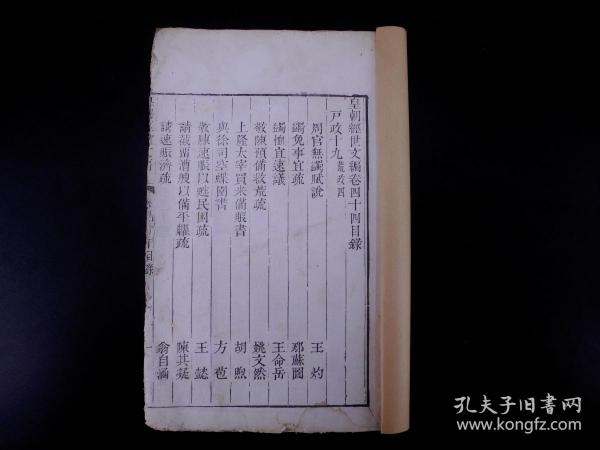 皇朝經世文編卷四十四目錄
戶政十九荒政四
周官無蠲賦說 王灼
蠲免事宜疏 邪蘇圖
蠲恤宜速議 王命岳
敬陳預備救荒疏 姚文然
上隆太宰買米備賑書 胡煦
與徐司空蝶園書 方苞
敬陳速賑以甦民困疏 王懿
請截留漕艘以備平糶疏 陳其凝
請速賑濟疏 翁自涵
目錄
孔夫子旧书网
www.kongfz.com